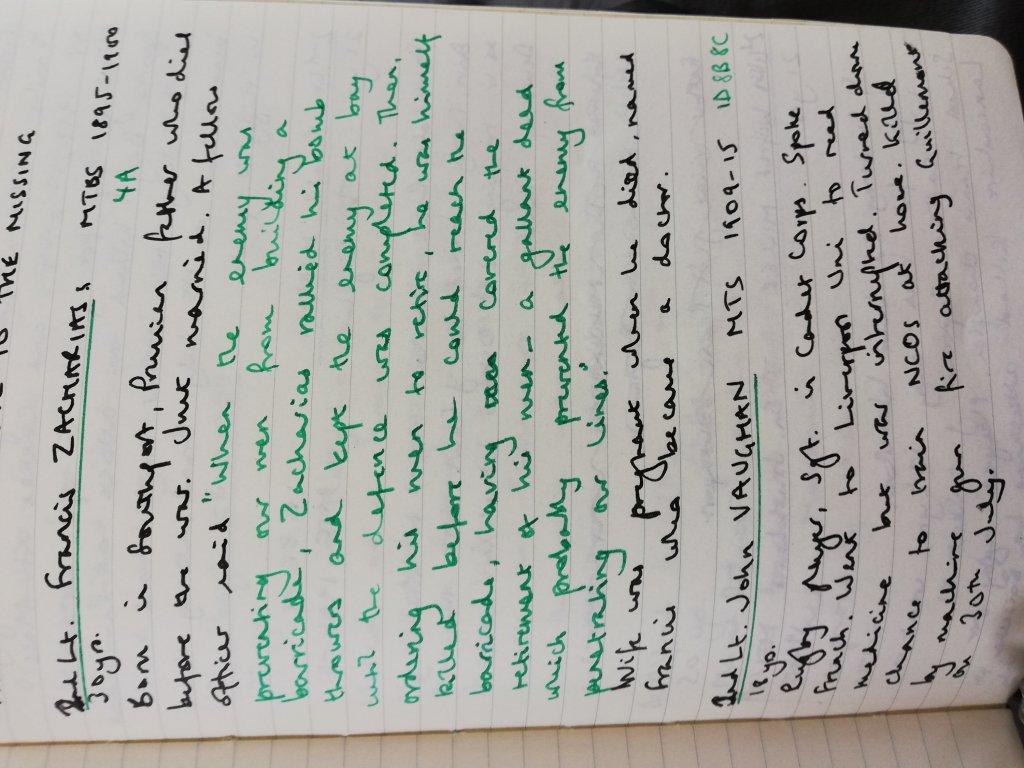 TO THE MISSING
2nd Lt. Francis ZACHARIAS, MTBS 1895-1900
30yrs. 4A
Born in Southport, Prussian father who died
before the war. Just married. A fellow
officer said "When the enemy was
preventing our men from building a
barricade, Zacharias rallied his bomb
throwers and kept the enemy at bay
until the defence was completed. Then,
ordering his men to retire, he was himself
killed before he could reach the
barricade, having covered the
retirement of his men - a gallant deed
which probably prevented the enemy from
penetrating our lines."
Wife was pregnant when he died, named
Francis who became a doctor.
2nd Lt. John VAUGHAN MTS 1909-15 1D8B8C
18yo.
Rugby player, Sgt. in Cadet Corps. Spoke
French. Went to Liverpool Uni to read
medicine but war interrupted. Turned down
chance to train NCOs at home. Killed
by machine gun fire attacking Guillemont
on 30th July.